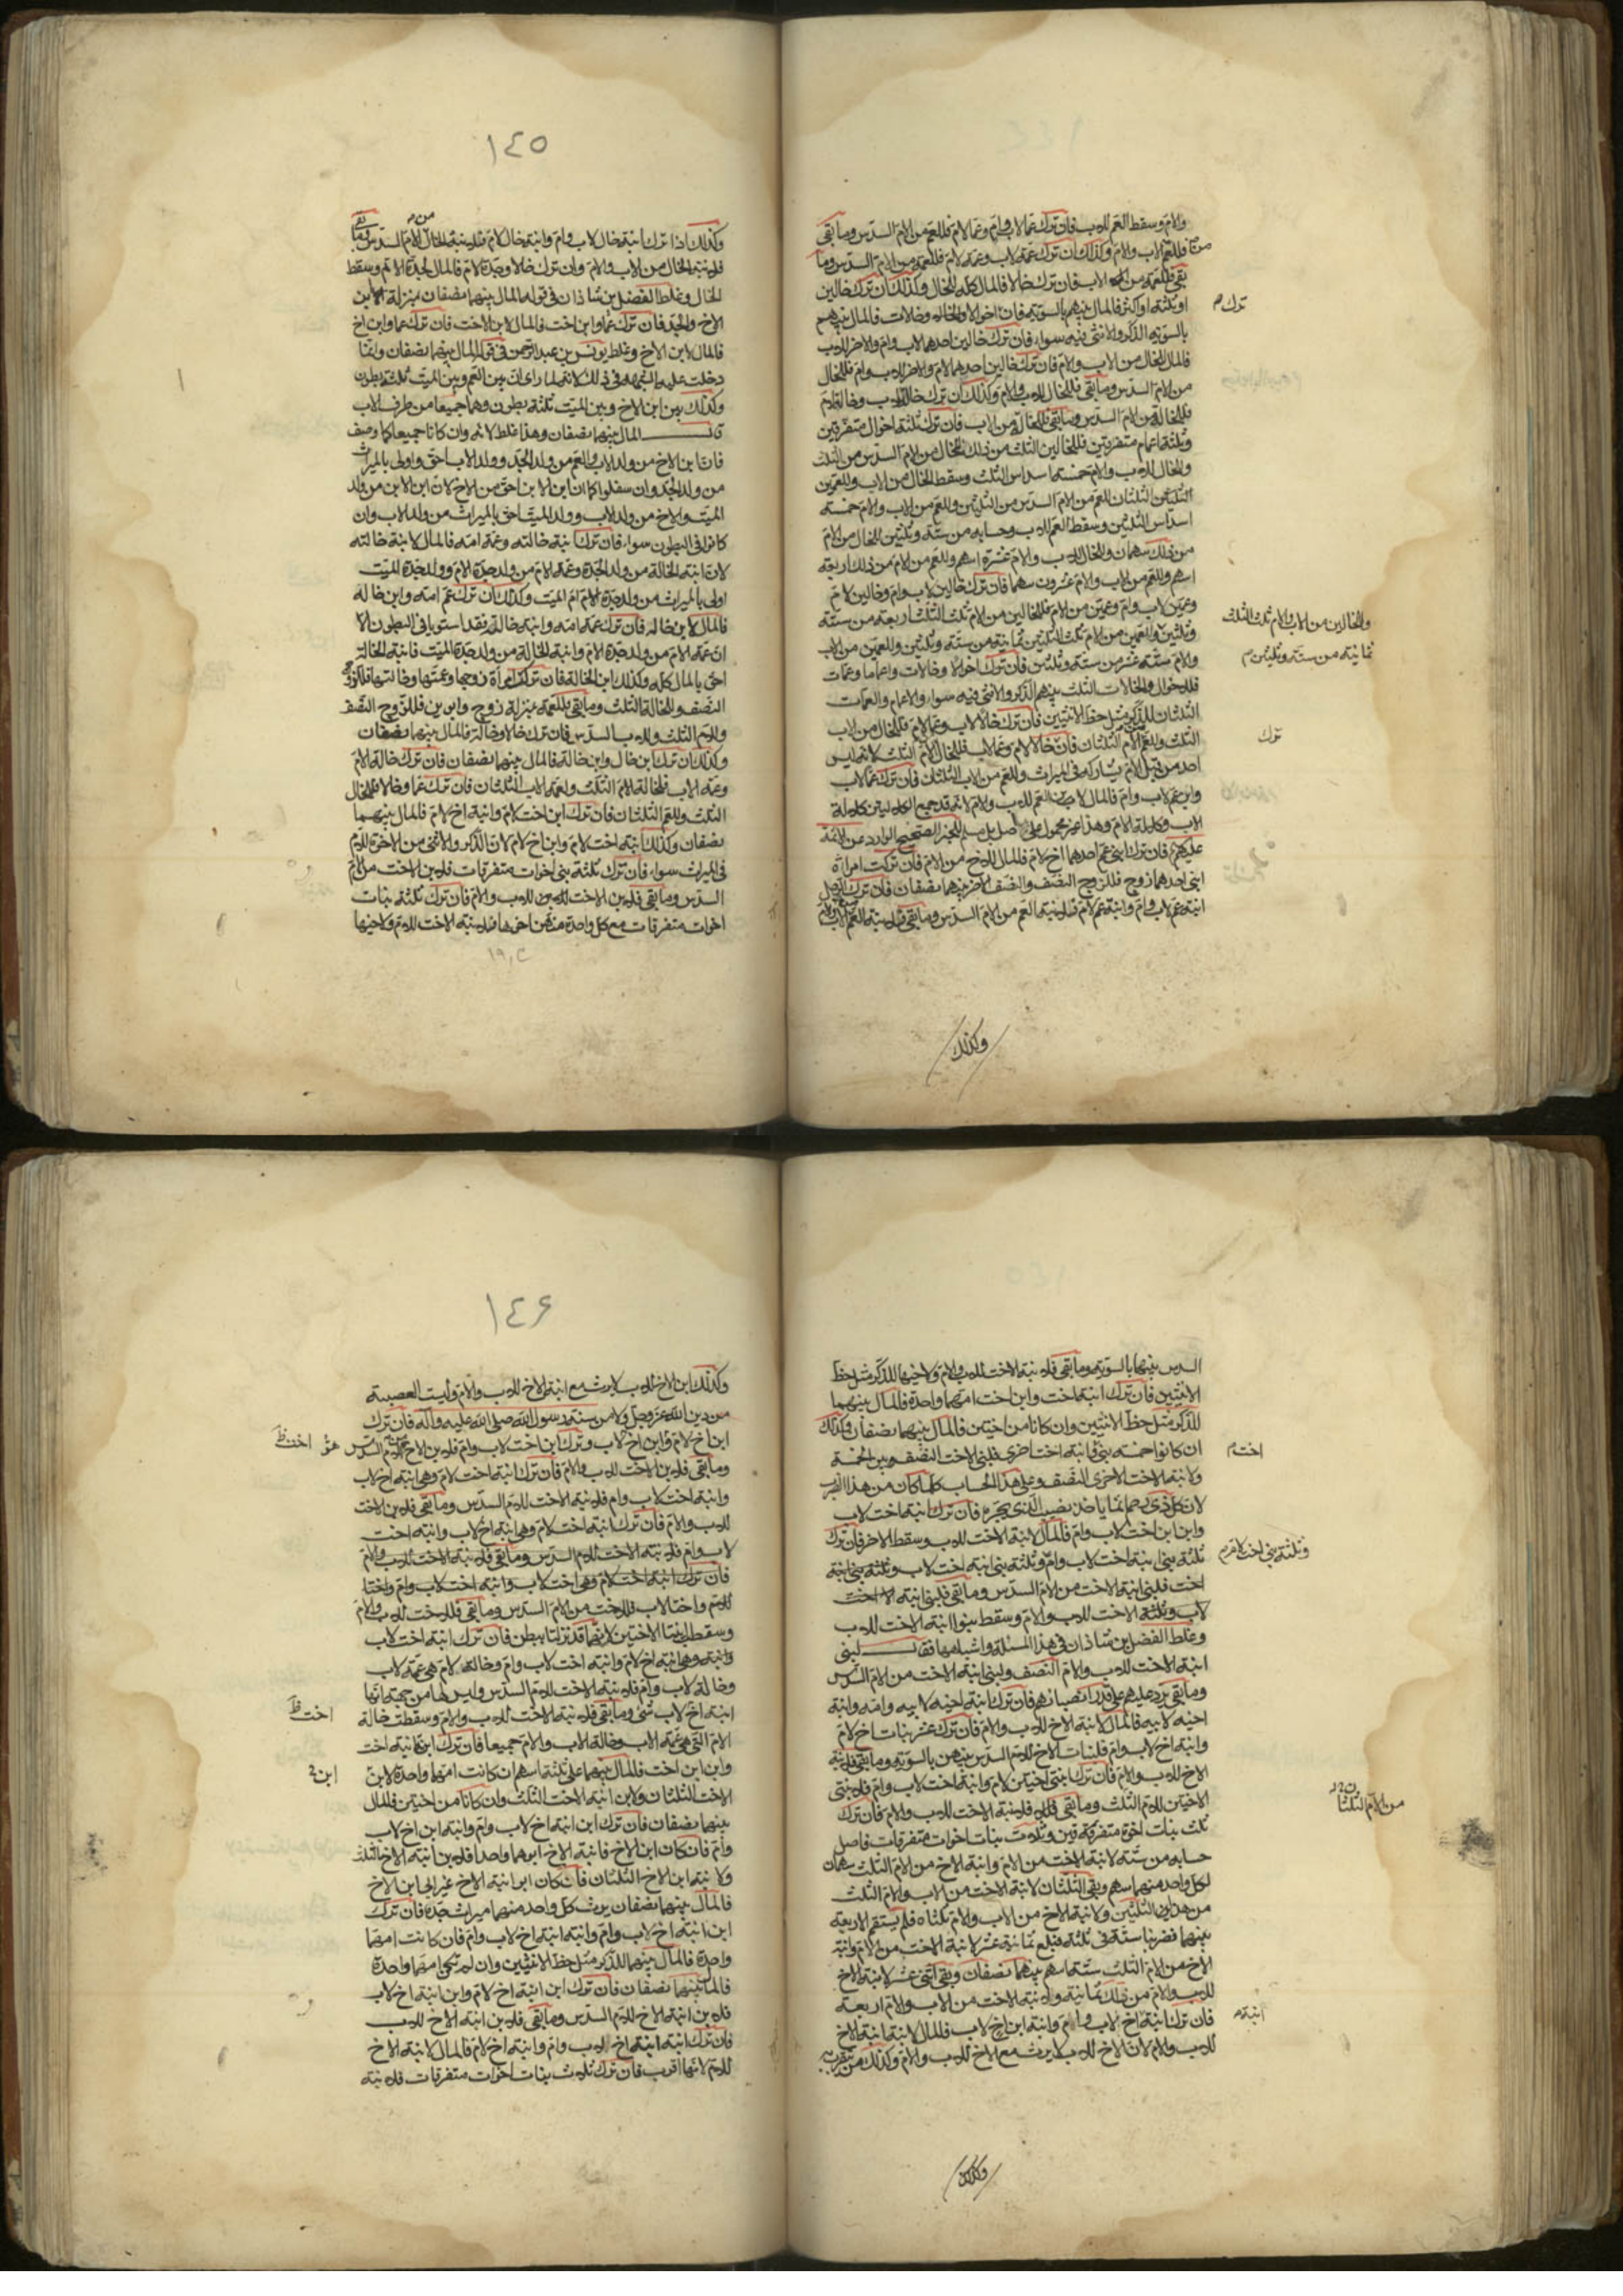 والام وسقط العم للاب فان ترك عما لاب وام وعما لام فللعم من الام السدس وما بقى
فللعم للاب والام وكذلك ان ترك عمة لاب وعمة لام فللعمة من الام السدس وما
بقى فللعمة من الاب فان ترك خالا فالمال كله للخال وكذلك ان ترك خالين
او ثلثة او اكثر فالمال بينهم بالسوية فان اخوالا وخالات فالمال بينهم
ترك م
بالسوية الذكر والانثى فيه سواء فان ترك خالين احدهما لاب وام والاخر لاب
فالمال للخال من الاب والام فان ترك خالين احدهما لام والاخر لاب وام فللخال
من الام السدس وما بقى فللخال للاب والام وكذلك ان ترك خالة لاب وخالة لام
فللخالة من الام السدس وما بقى فللخالة من الاب فان ترك ثلثة اخوال متفرقين
وثلثة اعمام متفرقين فللخالين الثلث من ذلك للخال من الام السدس من الثلث
وللخال للاب والام خمسة اسداس الثلث وسقط الخال من الاب وللعمين
الثلثان للعم من الام السدس من الثلثين وللعم من الاب والام خمسة
اسداس الثلثين وسقط العم للاب وحسابه من ستة وثلثين للخال من الام
من ذلك سهمان وللخال للاب والام عشرة اسهم وللعم من الام من ذلك اربعة
اسهم وللعم من الاب والام عشرون سهما فان ترك خالين لاب وام وخالين لام
وعمين لاب وام وعمين من الام فللخالين من الام ثلث الثلث اربعة من ستة
وللخالين من الاب والام ثلثا الثلث
ثمانية من ستة وثلثين م
وثلثين وللعمين من الام ثلث الثلثين ثمانية من ستة وثلثين وللعمين من الاب
والام ستة عشر من ستة وثلثين فان ترك اخوالا وخالات واعماما وعمات
فللاخوال والخالات الثلث بينهم الذكر والانثى فيه سواء وللاعمام والعمات
الثلثان للذكر مثل حظ الانثيين فان ترك خالا لاب وعما لام فللخال من الاب
الثلث وللعم للام الثلثان فان خالا لام وعما لاب فللخال للام الثلث لانه ليس
ترك
احد من قبل الام يشاركه في الميراث وللعم من الاب الثلثان فان ترك عما لاب
وابن عم لاب وام فالمال لابن العم للاب والام لانه قد جمع الكلالتين كلالة
الاب وكلالة الام وهذا غير محمول على اصل بل مسلم للخبر الصحيح الوارد عن الائمة
عليهم فان ترك ابنى عم احدهما اخ لام فالمال للاخ من الام فان تركت امراة
ابنى احدهما زوج فللزوج النصف والنصف الاخر بينهما نصفان فان ترك الرجل
ابنة عم لاب وام وابنة عم لام فلابنة العم من الام السدس وما بقى فلابنة العم للاب والام
وكذلك
١٤٥
وكذلك اذا ترك ابنة خال لاب وام وابنة خال لام فلابنة الخال من الام السدس وما بقى
فلابنة الخال من الاب والام وان ترك خالا وجدة لام فالمال لجدة الام وسقط
الخال وغلط الفضل بن شاذان في قوله المال بينهما نصفان بمنزلة ابن
الاخ والجد فان ترك عما وابن اخت فالمال لابن الاخت فان ترك عما وابن اخ
فالمال لابن الاخ وغلط يونس بن عبد الرحمن في قوله المال بينهما نصفان وانما
دخلت عليه الشبهة في ذلك لانه لما راى ان بين العم وبين الميت ثلثة بطون
وكذلك بين ابن الاخ وبين الميت ثلثة بطون وهما جميعا من طرف الاب
قال المال بينهما نصفان وهذا غلط لانه وان كانا جميعا كما وصف
فان ابن الاخ من ولد الاب والعم من ولد الجد وولد الاب احق واولى بالميراث
من ولد الجد وان سفلوا كما ان ابن الابن احق من الاخ لان ابن الابن من ولد
الميت والاخ من ولد الاب وولد الميت احق بالميراث من ولد الاب وان
كانوا في البطون سواء فان ترك ابنة خالته وعمة امه فالمال لابنة خالته
لان ابنة الخالة من ولد الجدة وعمة الام من ولد جدة الام وولد جدة الميت
اولى بالميراث من ولد جدة الام ام الميت وكذلك ان ترك عم امه وابن خاله
فالمال لابن خاله فان ترك عمة امه وابنة خالته فقد استويا في البطون الا
ان عمة الام من ولد جدة الام وابنة الخالة من ولد جدة الميت فابنة الخالة
احق بالمال كله وكذلك ابن الخالة فان تركت امراة زوجها وعمتها وخالتها فللزوج
النصف وللخالة الثلث وما بقى فللعمة بمنزلة زوج وابوين فللزوج النصف
وللام الثلث وللاب السدس فان ترك خالا وخالة فالمال بينهما نصفان
وكذلك ان ترك ابن خال وابن خالة فالمال بينهما نصفان فان ترك خالة الام
وعمة الاب فلخالة الام الثلث ولعمة الاب الثلثان فان ترك عما وخالا فللخال
الثلث وللعم الثلثان فان ترك ابن اخت لام وابنة اخ لام فالمال بينهما
نصفان وكذلك ابنة اخت لام وابن اخ لام لان الذكر والانثى من الاخوة للام
في الميراث سواء فان ترك ثلثة بنى اخوات متفرقات فلابن الاخت من الام
السدس وما بقى فلابن الاخت للاب والام فان ترك ثلثة بنات
اخوات متفرقات مع كل واحدة منهن اخوها فلابنة الاخت للام ولاخيها
السدس بينهما بالسوية وما بقى فلابنة الاخت للاب والام ولاخيها للذكر مثل حظ
الانثيين فان ترك ابنة اخت وابن اخت امهما واحدة فالمال بينهما
للذكر مثل حظ الانثيين وان كانا من اختين فالمال بينهما نصفان وكذلك
ان كانوا خمسة بنى وابنة اخت اخرى فلبنى الاخت النصف وبين الخمسة
اخت م
ولابنة الاخت الاخرى النصف وعلى هذا الحساب كلما كان من هذا الضرب
لان كل ذى رحم انما ياخذ نصيب الذى يجره فان ترك ابنة اخت لاب
وابن ابن اخت لاب وام فالمال لابنة الاخت للاب وسقط الاخر فان ترك
ثلثة بنى ابنة اخت لاب وام وثلثة بنى ابنة اخت لاب وثلثة بنى ابنة
وثلثة بنى اخت لام م
اخت فلبنى ابنة الاخت من الام السدس وما بقى فلبنى ابنة الاخت
لاب وثلثة الاخت للاب والام وسقط بنوا ابنة الاخت للاب
وغلط الفضل بن شاذان في هذا المسئلة واشباهها فقال لبنى
ابنة الاخت للاب والام النصف ولبنى ابنة الاخت من الام السدس
وما بقى رد عليهم على قدر انصبائهم فان ترك ابنة اخيه لابيه وامه وابنة
اخيه لابيه فالمال لابنة الاخ للاب والام فان ترك عشر بنات اخ لام
وابنة اخ لاب وام فلبنات الاخ للام السدس بينهن بالسوية وما بقى فلابنة
الاخ للاب والام فان ترك ابنتى اختين لام وابنة اخت لاب وام فلابنتى
الاختين للام الثلث وما بقى فلابنة الاخت للاب والام فان ترك
ثلث بنات اخوة متفرقين وثلث بنات اخوات متفرقات فاصل
حسابه من ستة لابنة الاخت من الام وابنة الاخ من الام الثلث سهمان
لكل واحد منهما سهم وبقى الثلثان لابنة الاخت من الاب والام الثلث
من الام الثلثان
من هذا الثلثين ولابنة الاخ من الاب والام ثلثاه فلم يستقم الاربعة
بينهما فضربنا ستة في ثلثة فبلغ ثمانية عشر لابنة الاخت من الام وابنة
الاخ من الام الثلث ستة اسهم بينهما نصفان وبقى اثنى عشر لابنة الاخ
للاب والام من ذلك ثمانية ولابنة الاخت من الاب والام اربعة
فان ترك ابنة اخ لاب وام وابنة ابن اخ لاب فالمال لابنة ابنة الاخ
ابنة م
للاب والام لان الاخ للاب لا يرث مع الاخ للاب والام وكذلك من يتقرب به
وكذلك
١٤٦
وكذلك ابن الاخ للاب لا يرث مع ابنة الاخ للاب والام وليت العصبة
من دين الله عز وجل ولا من سنة رسول الله صلى الله عليه واله فان ترك
ابن اخ لام وابن اخ لاب وترك ابن اخت لاب وام فلابن الاخ للام السدس
اخت ظ
وما بقى فلابن الاخت للاب والام فان ترك ابنة اخت لام وهى ابنة اخ لاب
وابنة اخت لاب وام فلابنة الاخت للام السدس وما بقى فلابن الاخت
للاب والام فان ترك ابنة اخت لام وهى ابنة اخ لاب وابنة اخت
لاب وام فلابنة الاخت للام السدس وما بقى فلابنة الاخت للاب والام
فان ترك ابنة اخت لام وهى اخت لاب وابنة اخت لاب وام واختا
للام واختا لاب فللاخت من الام السدس وما بقى فللاخت للاب والام
وسقطت ابنتا الاختين لانهما قد نزلتا ببطن فان ترك ابنة اخت لاب
وابنة وهى ابنة اخ لام وابنة اخت لاب وام وخالة لام هى عمة لاب
وخالة لاب وام فلابنة الاخت للام السدس وليس لها من جهة انها
ابنة اخ لاب شئ وما بقى فلابنة الاخت للاب والام وسقطت خالة
اخت ظ
الام التى هى عمة الاب وخالة الاب والام جميعا فان ترك ابن ابنة اخت
وابن ابن اخت فالمال بينهما على ثلثة اسهم ان كانت امهما واحدة لابن
ابن م
الاخت الثلثان ولابن ابنة الاخت الثلث وان كانا من اختين فالمال
بينهما نصفان فان ترك ابن ابنة اخ لاب وام وابنة ابن اخ لاب
وام فان كان ابن الاخ وابنة الاخ ابوهما واحدا فلابن ابنة الاخ الثلث
ولابنة ابن الاخ الثلثان فان كان ابن ابنة الاخ غير ابى ابن الاخ
فالمال بينهما نصفان يرث كل واحد منهما ميراث جده فان ترك
ابن ابنة اخ لاب وام وابنة ابنة اخ لاب وام فان كانت امهما
واحدة فالمال بينهما للذكر مثل حظ الانثيين وان لم تكن امهما واحدة
فالمال بينهما نصفان فان ترك ابن ابنة اخ لام وابن ابنة اخ لاب
فلابن ابنة الاخ للام السدس وما بقى فلابن ابنة الاخ للاب
فان ترك ابنة ابنة اخ لاب وام وابنة اخ لام فالمال لابنة الاخ
للام لانها اقرب فان ترك ثلث بنات اخوات متفرقات فلابنة